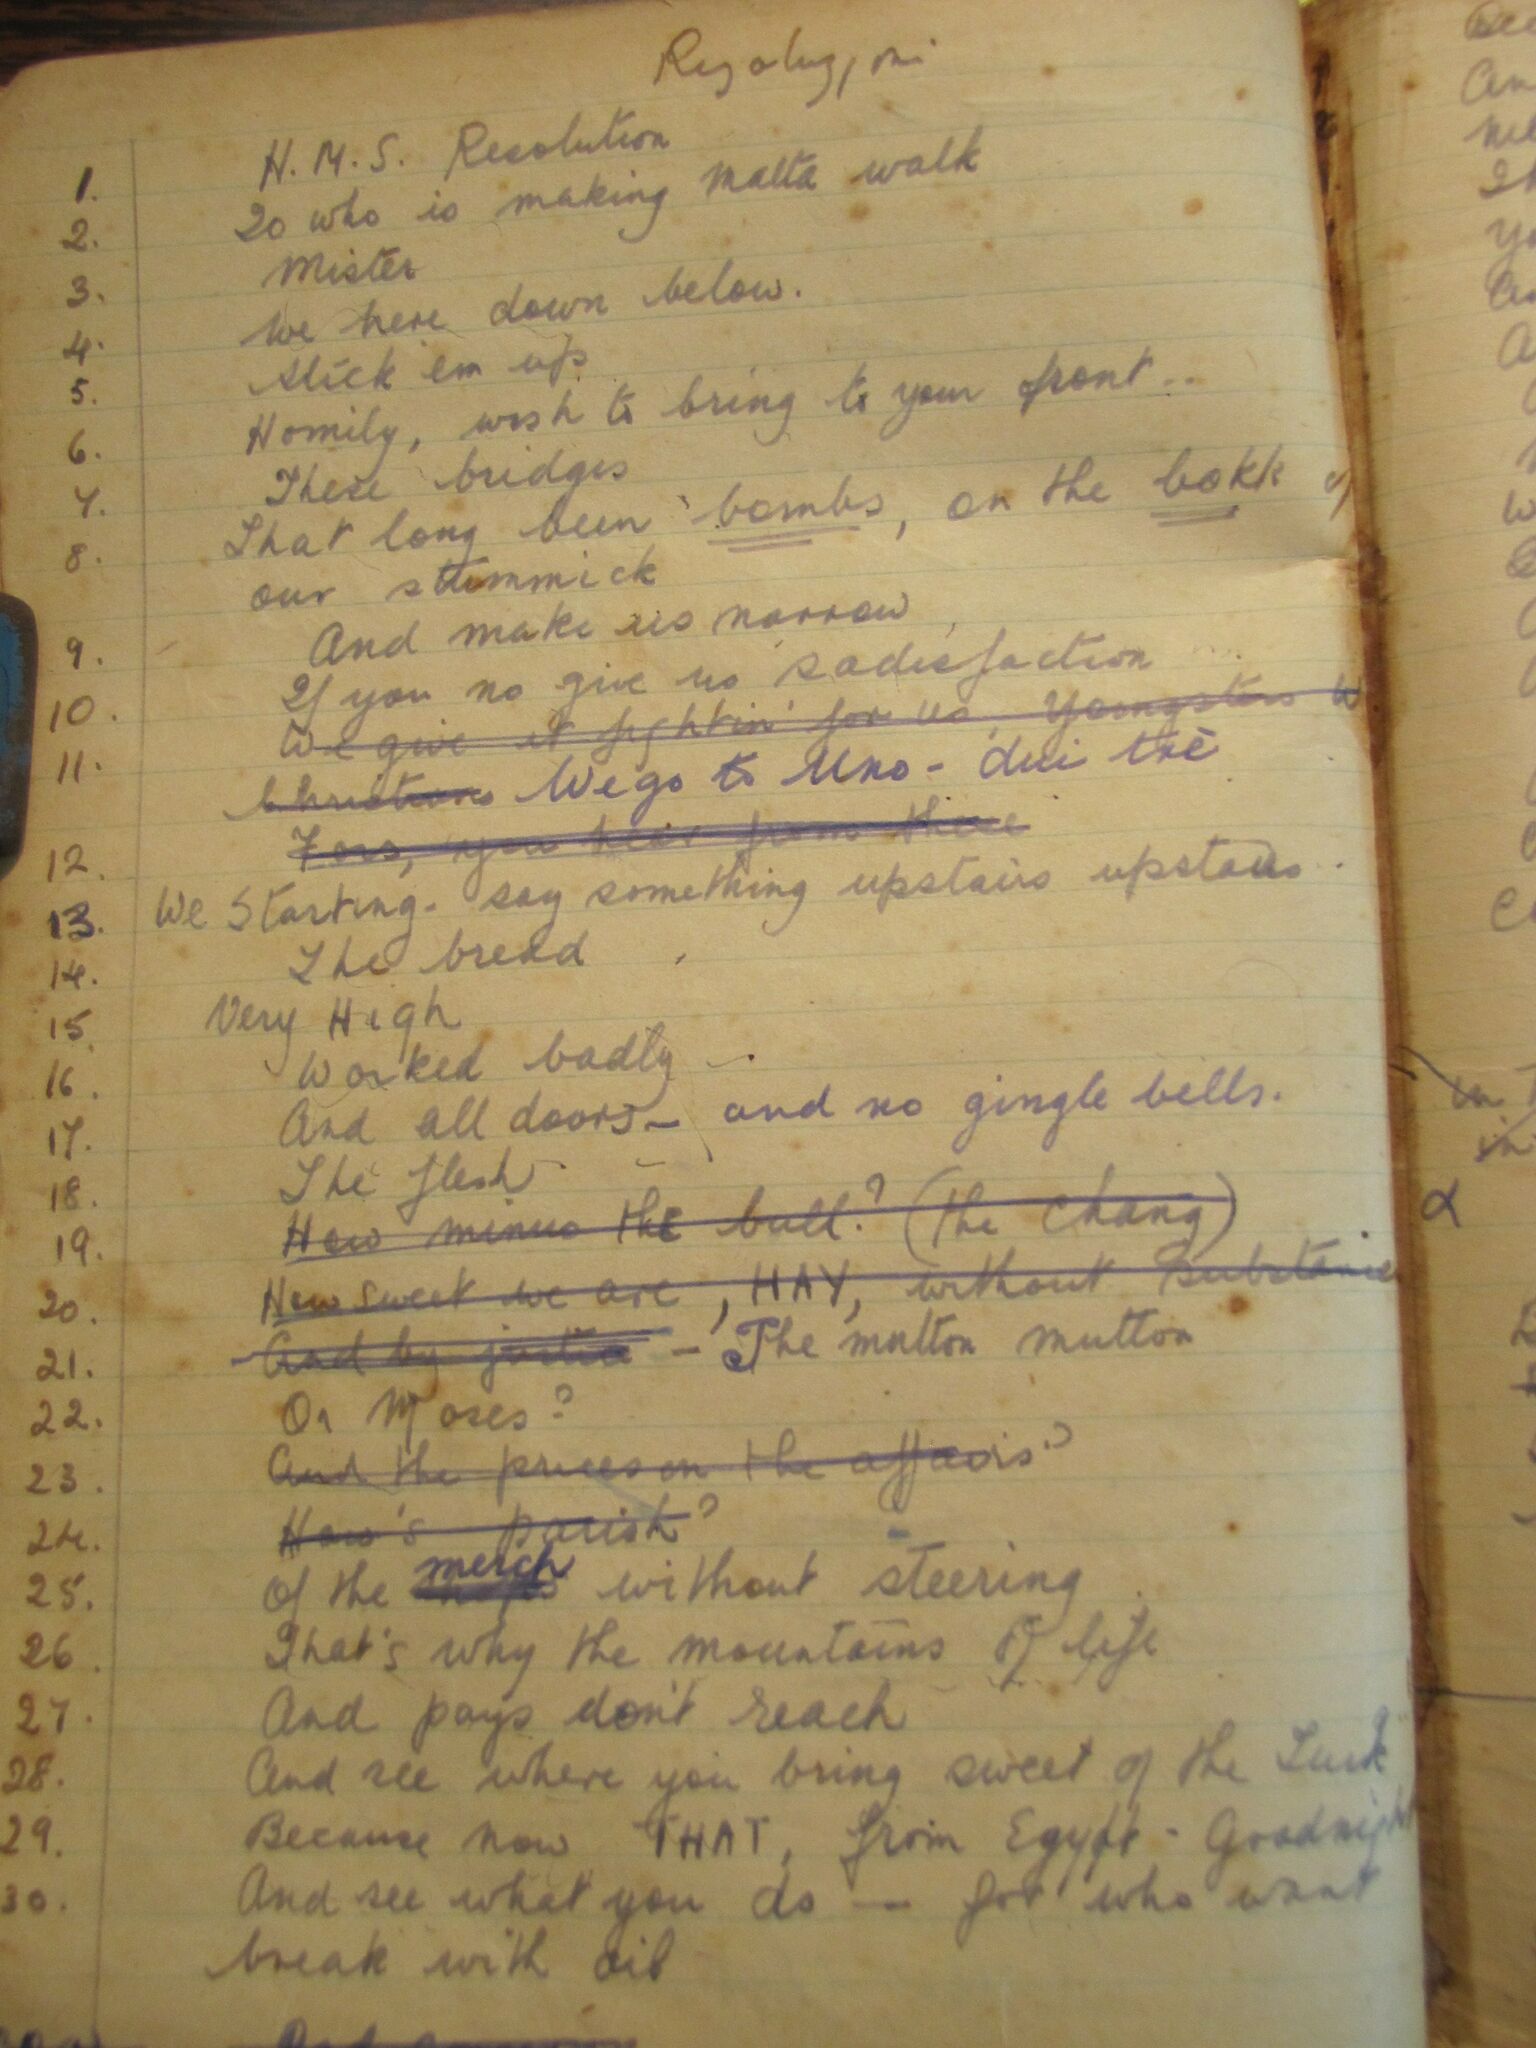 Rezoluzjoni
1. H.M.S. Resolution
2. So who is making Malta walk
Mister
3. We here down below.
4. Stick 'em up
5. Homily, wish to bring to your front..
6. These bridges
7. That long been bombs, on the bokk of
8. our stummick
9. And make us narrow
10. If you no give us sadisfaction
11. We give it fightin' for us, Youngsters W
Christians We go to Uno - dui tre
12. Fors, you hear from there
13. We Starting. say something upstairs upstairs.
14. The bread
15. Very High
16. Worked badly
17. And all doors - and no gingle bells.
18. The flesh
19. How minus the bull? (the chang)
20. How sweet we are, HAY, without substance
21. And by justice - The mutton mutton
22. Or Moses?
23. And the prices on the affairs?
24. How's parish?
25. Of the merch without steering
26. That's why the mountains of life
27. And pays don't reach
28. And see where you bring sweet of the Turk
29. Because now THAT, from Egypt - Goodnight
30. And see what you do - for who want
break with oil